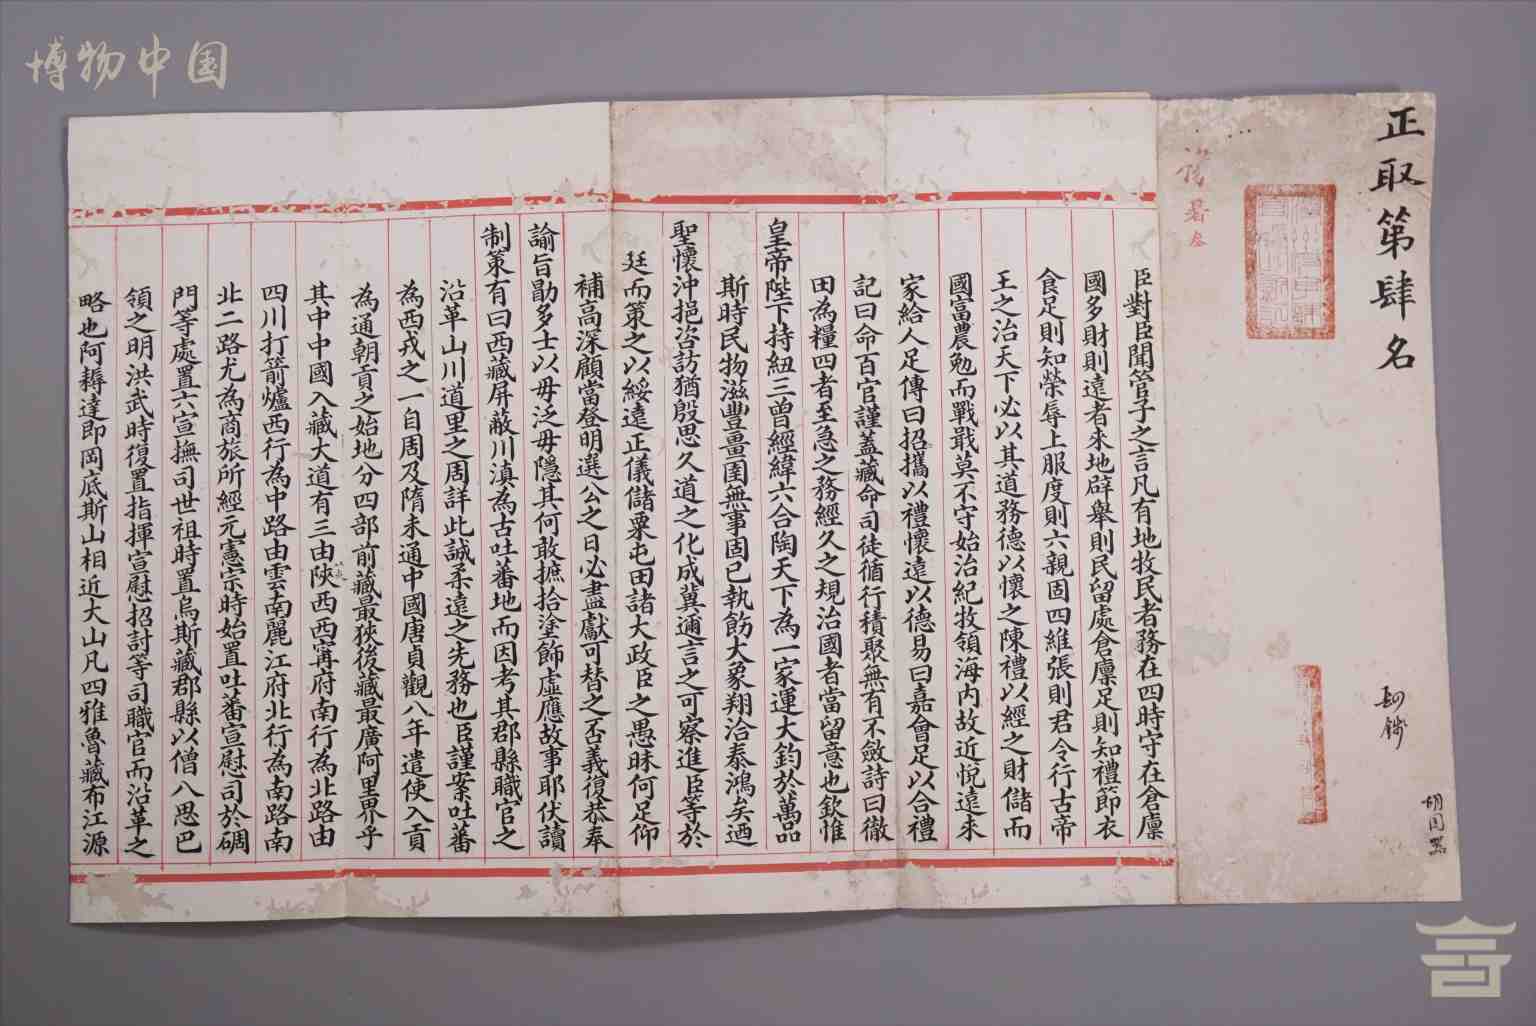 博物中国
正取第肆名
胡周照
暑叁
臣對臣聞管子之言凡有地牧民者務在四時守在倉廩
國多財則遠者來地辟舉則民留處倉廩足則知禮節衣
食足則知榮辱上服度則六親固四維張則君令行古帝
王之治天下必以其道務德以懷之陳禮以經之財儲而
國富農勉而戰戢莫不守始治紀牧領海内故近悅遠來
家給人足傳曰招攜以禮懷遠以德易曰嘉會足以合禮
記曰命百官謹蓋藏命司徒循行積聚無有不斂詩曰徹
田為糧四者至急之務經久之規治國者當留意也欽惟
皇帝陛下持紐三曾經緯六合陶天下為一家運大鈞於萬品
斯時民物滋豐畺圉無事固已執飭大象翔洽泰鴻矣迺
聖懷沖挹咨訪猶殷思久道之化成冀邇言之可察進臣等於
廷而策之以綏遠正儀儲粟屯田諸大政臣之愚昧何足仰
補高深顧當登明選公之日必盡獻可替之否義復恭奉
諭旨勖多士以毋泛毋隱其何敢摭拾塗飾虛應故事耶伏讀
制策有曰西藏屏蔽川滇為古吐蕃地而因考其郡縣職官之
沿革山川道里之周詳此誠柔遠之先務也臣謹案吐蕃
為西戎之一自周及隋未通中國唐貞觀八年遣使入貢
為通朝貢之始地分四部前藏最狹後藏最廣阿里界乎
其中中國入藏大道有三由陝西西寧府南行為北路由
四川打箭爐西行為中路由雲南麗江府北行為南路南
北二路尤為商旅所經元憲宗時始置吐蕃宣慰司於碉
門等處置六宣撫司世祖時置烏斯藏郡縣以僧八思巴
領之明洪武時復置指揮宣慰招討等司職官而沿革之
略也阿耨達即岡底斯山相近大山凡四雅魯藏布江源